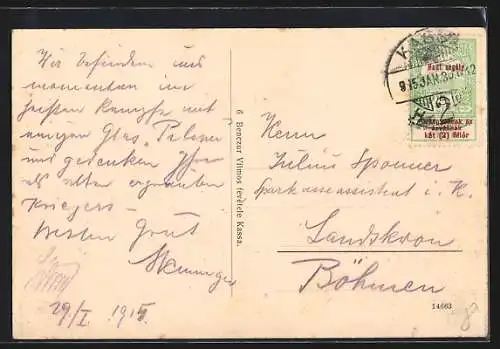 Wir befinden uns
momentan im
heißen Kampfe mit
einigen Glas Pilsner
und gedenken Ihrer
als alten ergrauten
Kriegers
Besten Gruß
29/I 1915
6 Benczur Vilmos fevétele Kassa.
KASSA
915 JAN. 30
Hadi segély
Özvegyeknek és
árváknak
két (2) fillér
Herrn
Julius Sponner
Sparkasseassistent i. R.
Landskron
Böhmen
14663